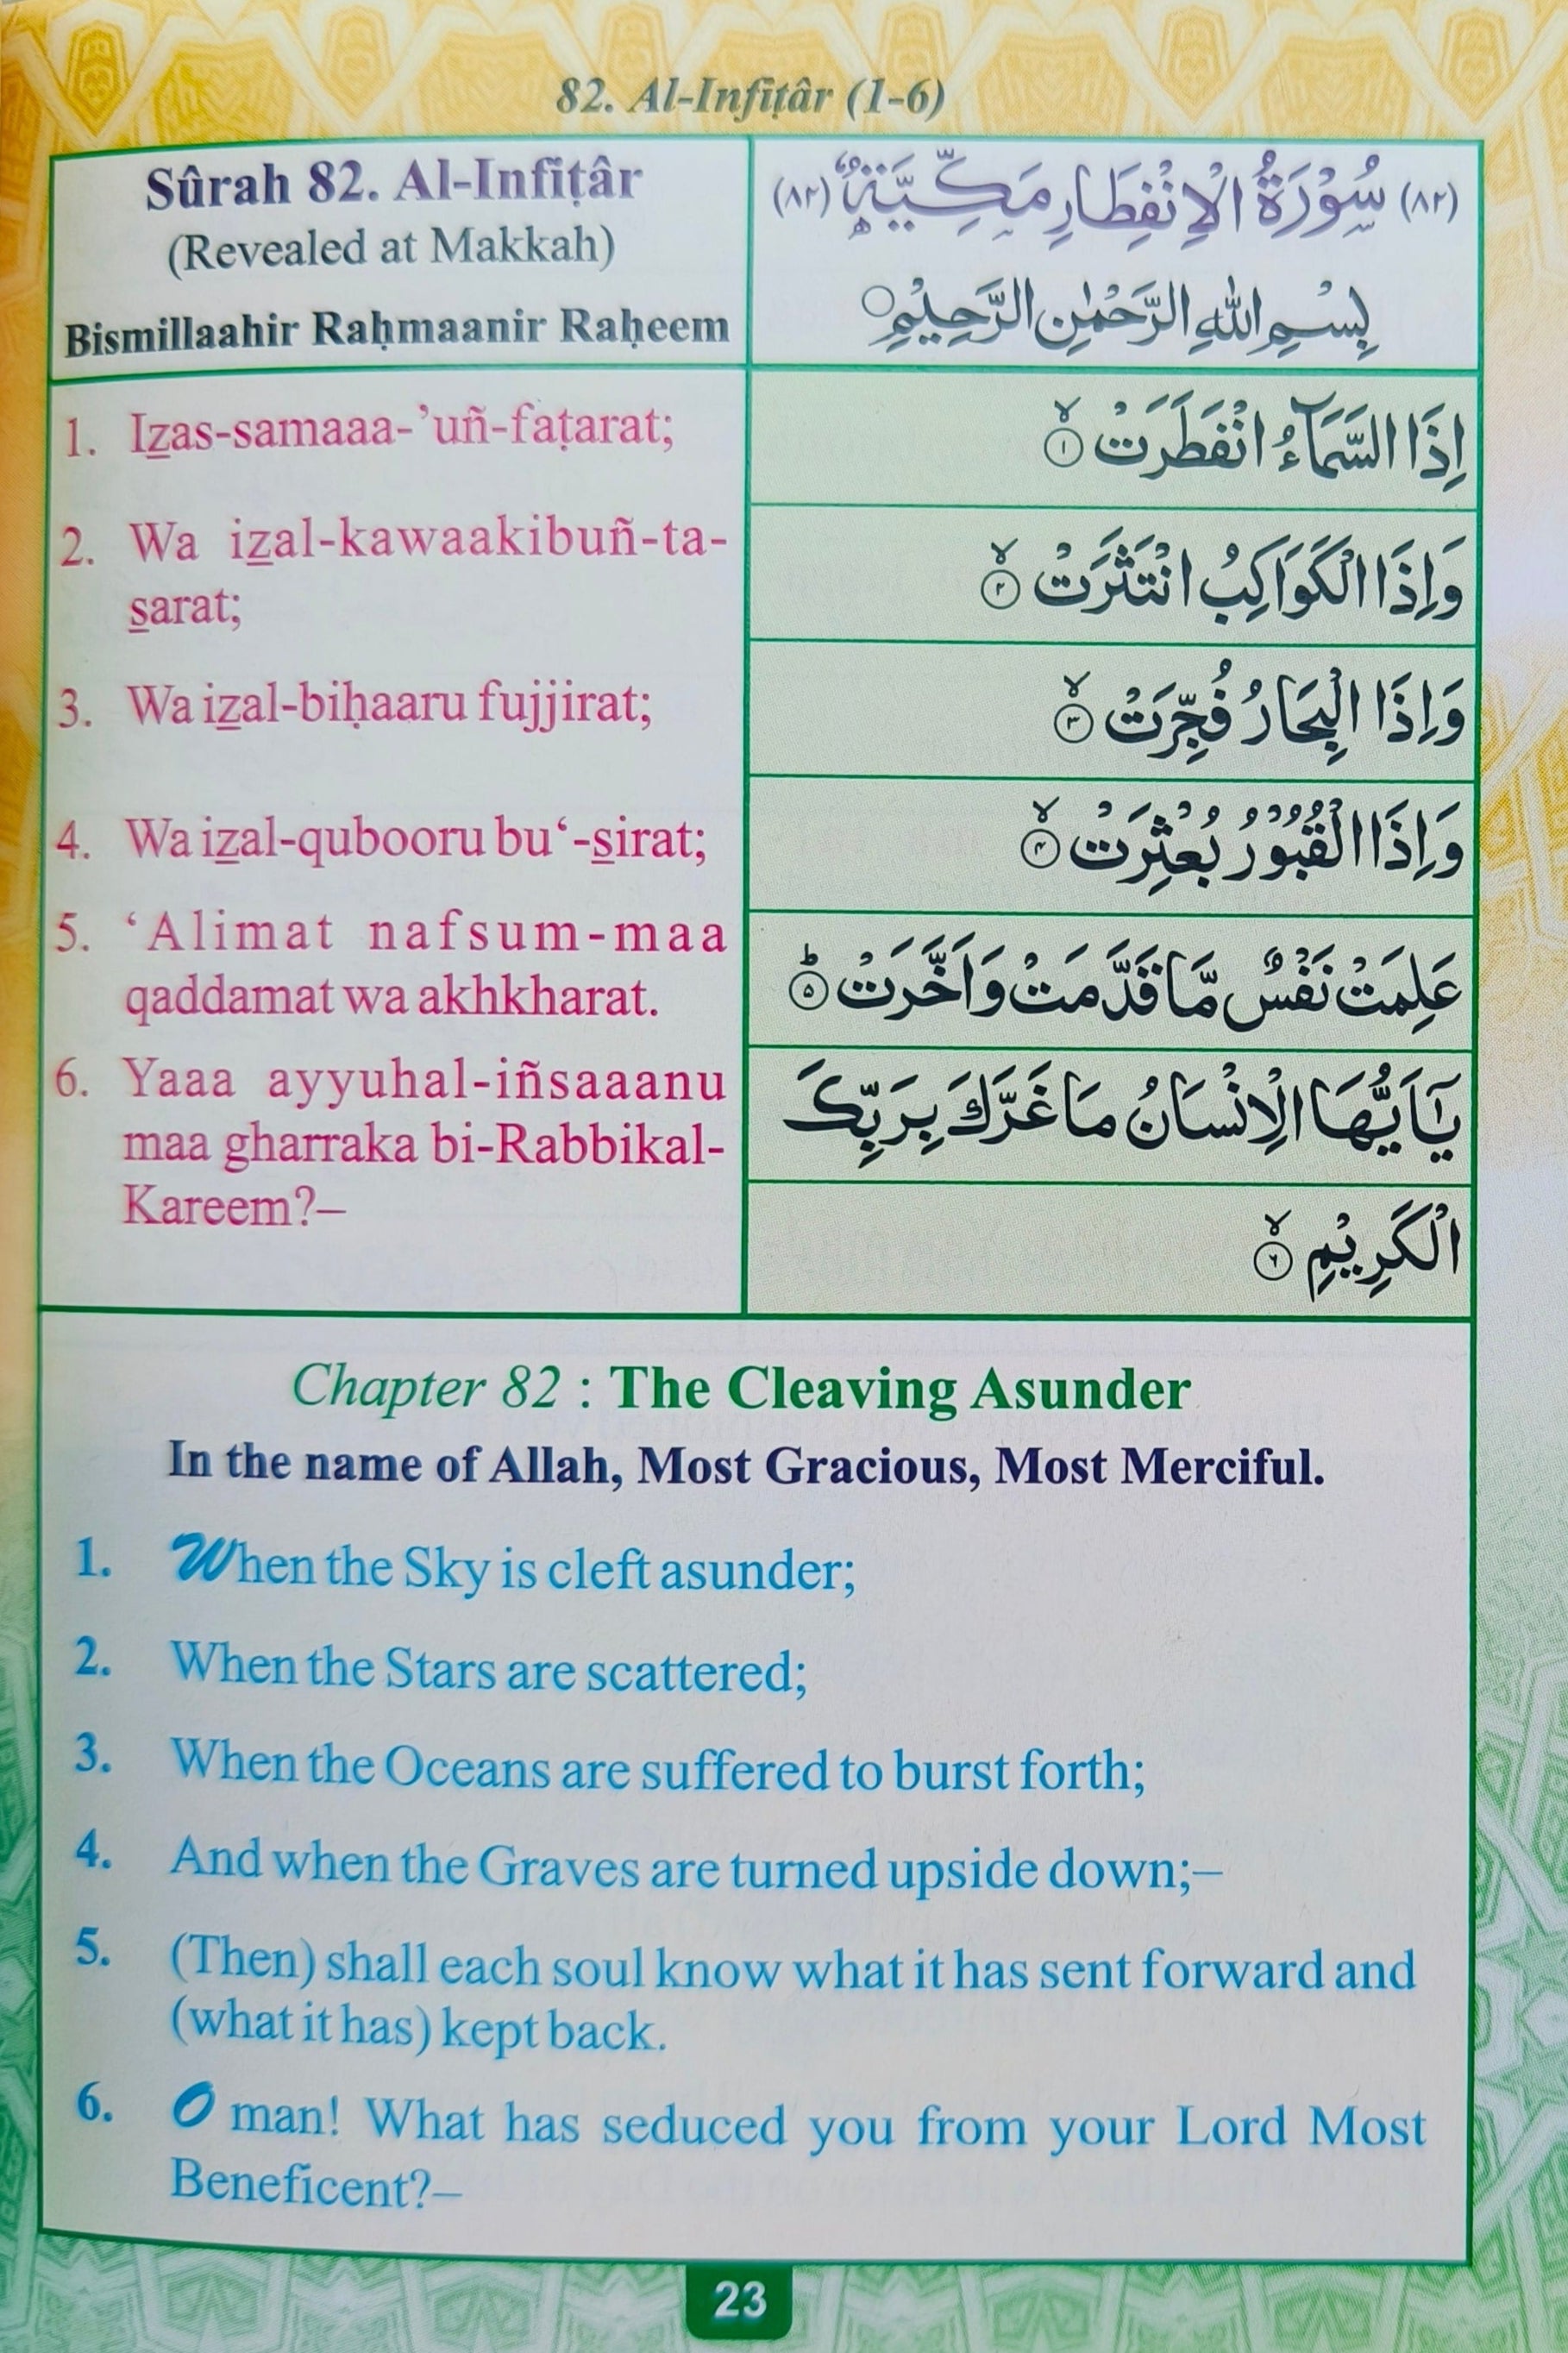 82. Al-Infiṭâr (1-6)
Sûrah 82. Al-Infiṭâr
(Revealed at Makkah)
Bismillaahir Raḥmaanir Raḥeem
(٨٢) سُوْرَةُ الْاِنْفِطَارِ مَكِّيَّةٌ (٨٢)
بِسْمِ اللّٰهِ الرَّحْمٰنِ الرَّحِيْمِ
1. Iz̲as-samaaa-’uñ-faṭarat;
2. Wa iz̲al-kawaakibuñ-ta-
s̲arat;
3. Wa iz̲al-biḥaaru fujjirat;
4. Wa iz̲al-qubooru bu‘-s̲irat;
5. ‘Alimat nafsum-maa
qaddamat wa akhkharat.
6. Yaaa ayyuhal-iñsaaanu
maa gharraka bi-Rabbikal-
Kareem?–
اِذَا السَّمَآءُ انْفَطَرَتْ ۙ‏﴿۱﴾
وَاِذَا الْكَوَاكِبُ انْتَثَرَتْ ۙ‏﴿۲﴾
وَاِذَا الْبِحَارُ فُجِّرَتْ ۙ‏﴿۳﴾
وَاِذَا الْقُبُوْرُ بُعْثِرَتْ ۙ‏﴿۴﴾
عَلِمَتْ نَفْسٌ مَّا قَدَّمَتْ وَاَخَّرَتْ ؕ‏﴿۵﴾
يٰۤاَيُّهَا الْاِنْسَانُ مَا غَرَّكَ بِرَبِّكَ
الْكَرِيْمِ ۙ‏﴿۶﴾
Chapter 82 : The Cleaving Asunder
In the name of Allah, Most Gracious, Most Merciful.
1. When the Sky is cleft asunder;
2. When the Stars are scattered;
3. When the Oceans are suffered to burst forth;
4. And when the Graves are turned upside down;–
5. (Then) shall each soul know what it has sent forward and
(what it has) kept back.
6. O man! What has seduced you from your Lord Most
Beneficent?–
23